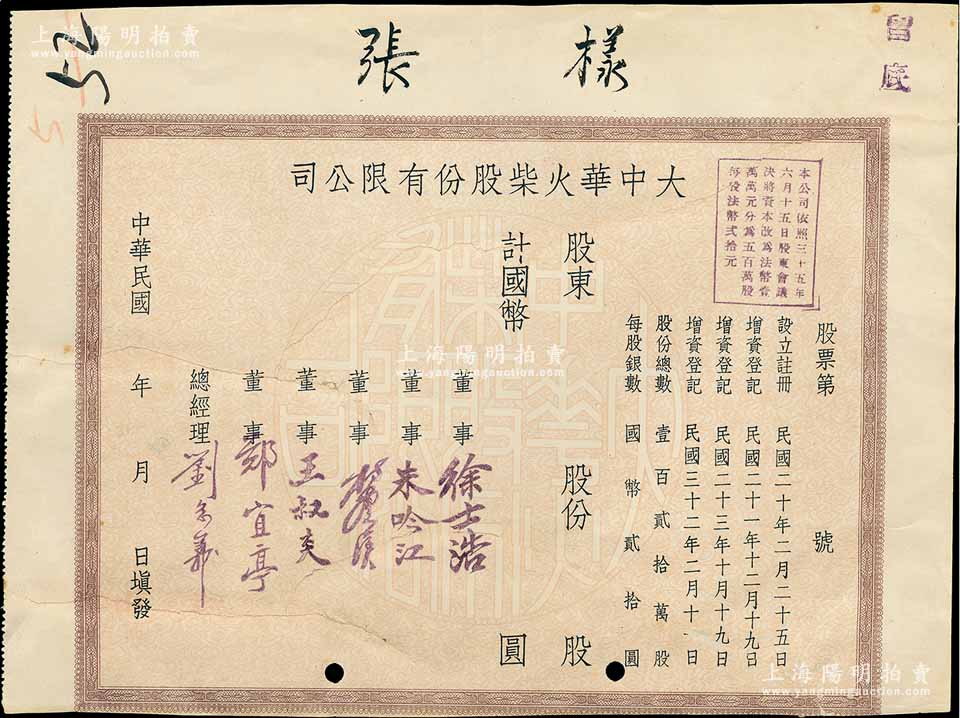 上海陽明拍賣
www.yangmingauction.com
樣張
留底
大中華火柴股份有限公司
本公司依照三十五年
六月十五日股東會議
決將資本改爲法幣壹
萬萬元分爲五百萬股
每股法幣弍拾元
股票第 號
設立註冊 民國二十年二月二十五日
增資登記 民國二十一年十二月十九日
增資登記 民國二十三年十月十九日
增資登記 民國三十二年二月十一日
股份總數 壹百貳拾萬股
每股銀數 國幣貳拾圓
股東 股份 股
計國幣 圓
董事 徐士浩
董事 朱吟江
董事
董事 王叔賢
董事 鄭宜亭
總經理 劉念義
中華民國 年 月 日塡發
上海陽明拍賣
www.yangmingauction.com
上海陽明拍賣
www.yangmingauction.com